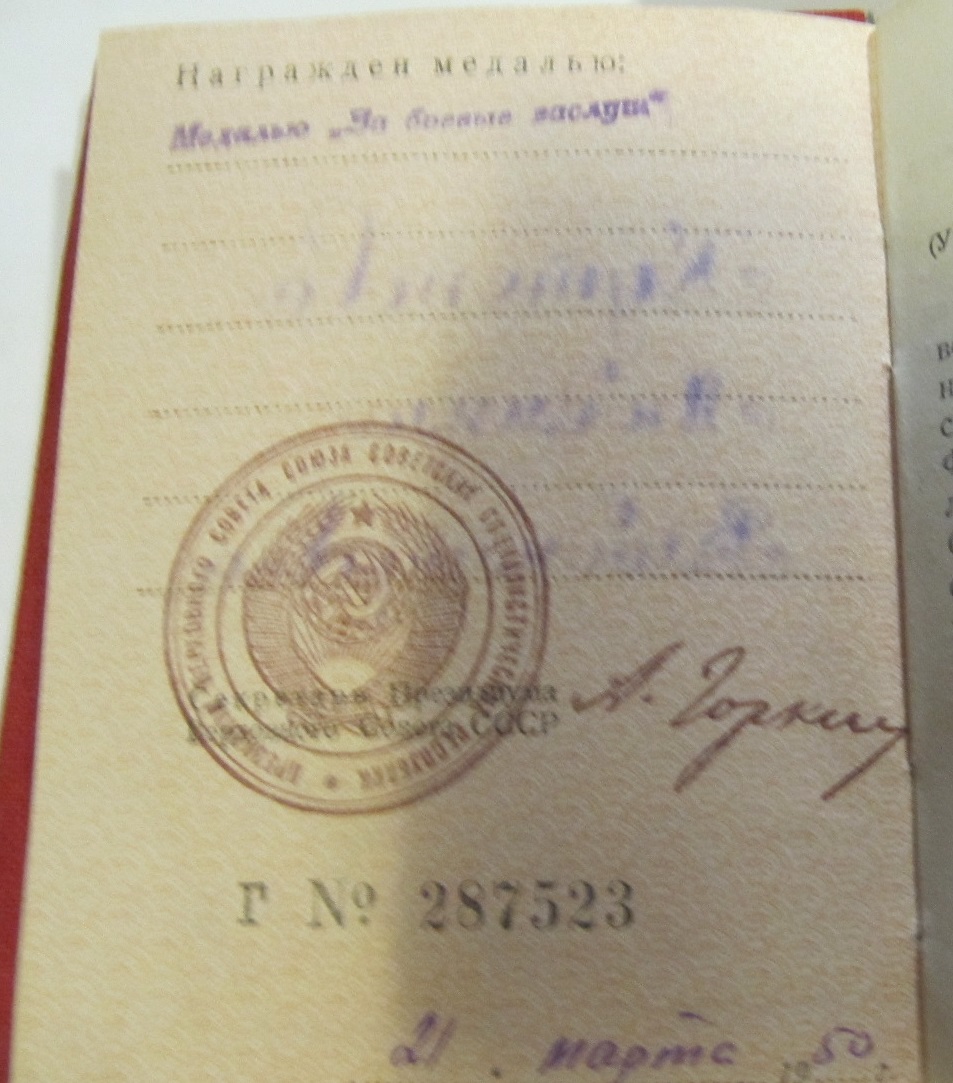 Награжден медалью:
Медалью „За боевые заслуги“
ПРЕЗИДИУМ ВЕРХОВНОГО СОВЕТА СОЮЗА СОВЕТСКИХ СОЦИАЛИСТИЧЕСКИХ РЕСПУБЛИК
Секретарь Президиума
Верховного Совета СССР
А. Горкин
Г № 287523
21 марта 1950